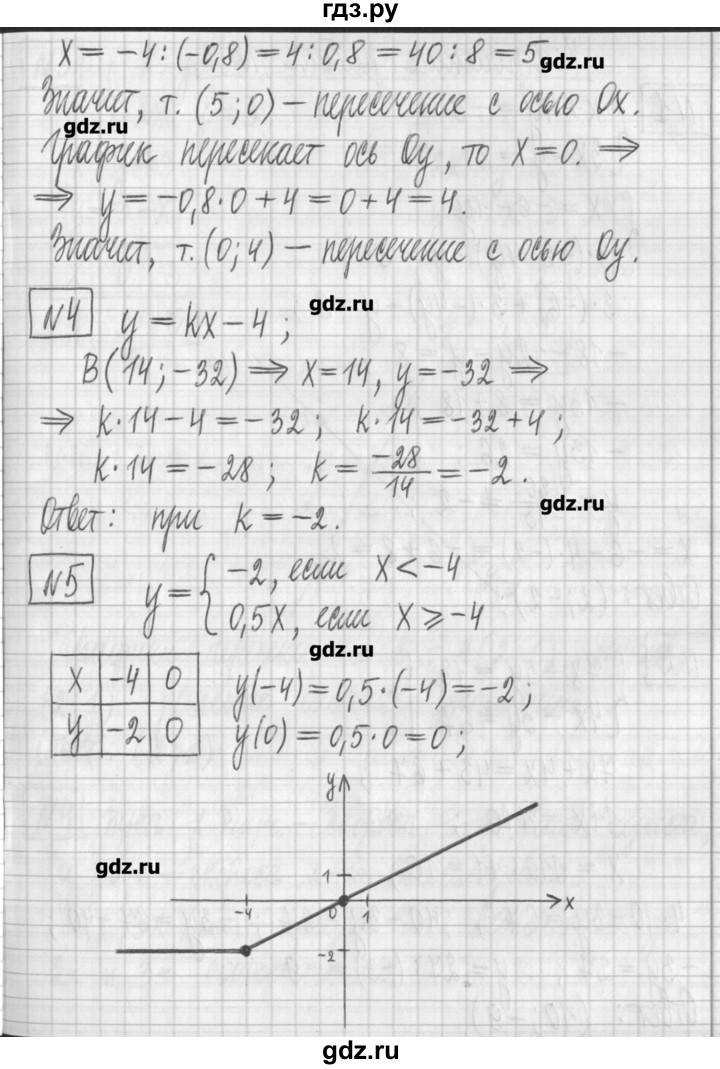 гдз.ру
x = -4 : (-0,8) = 4 : 0,8 = 40 : 8 = 5
gdz.ru
Значит, т. (5; 0) — пересечение с осью Ox.
gdz.ru
График пересекает ось Oy, то x = 0. ⇒
⇒ y = -0,8·0 + 4 = 0 + 4 = 4.
Значит, т. (0; 4) — пересечение с осью Oy.
gdz.ru
№4 y = kx - 4 ;
B(14; -32) ⇒ x = 14, y = -32 ⇒
⇒ k·14 - 4 = -32 ; k·14 = -32 + 4 ;
k·14 = -28 ; k = -28/14 = -2.
gdz.ru
Ответ: при k = -2.
№5 y = { -2, если x < -4
0,5x, если x ⩾ -4
gdz.ru
x -4 0 y(-4) = 0,5·(-4) = -2 ;
y -2 0 y(0) = 0,5·0 = 0 ;
y
gdz.ru
1
-4 0 1 x
-2
gdz.ru